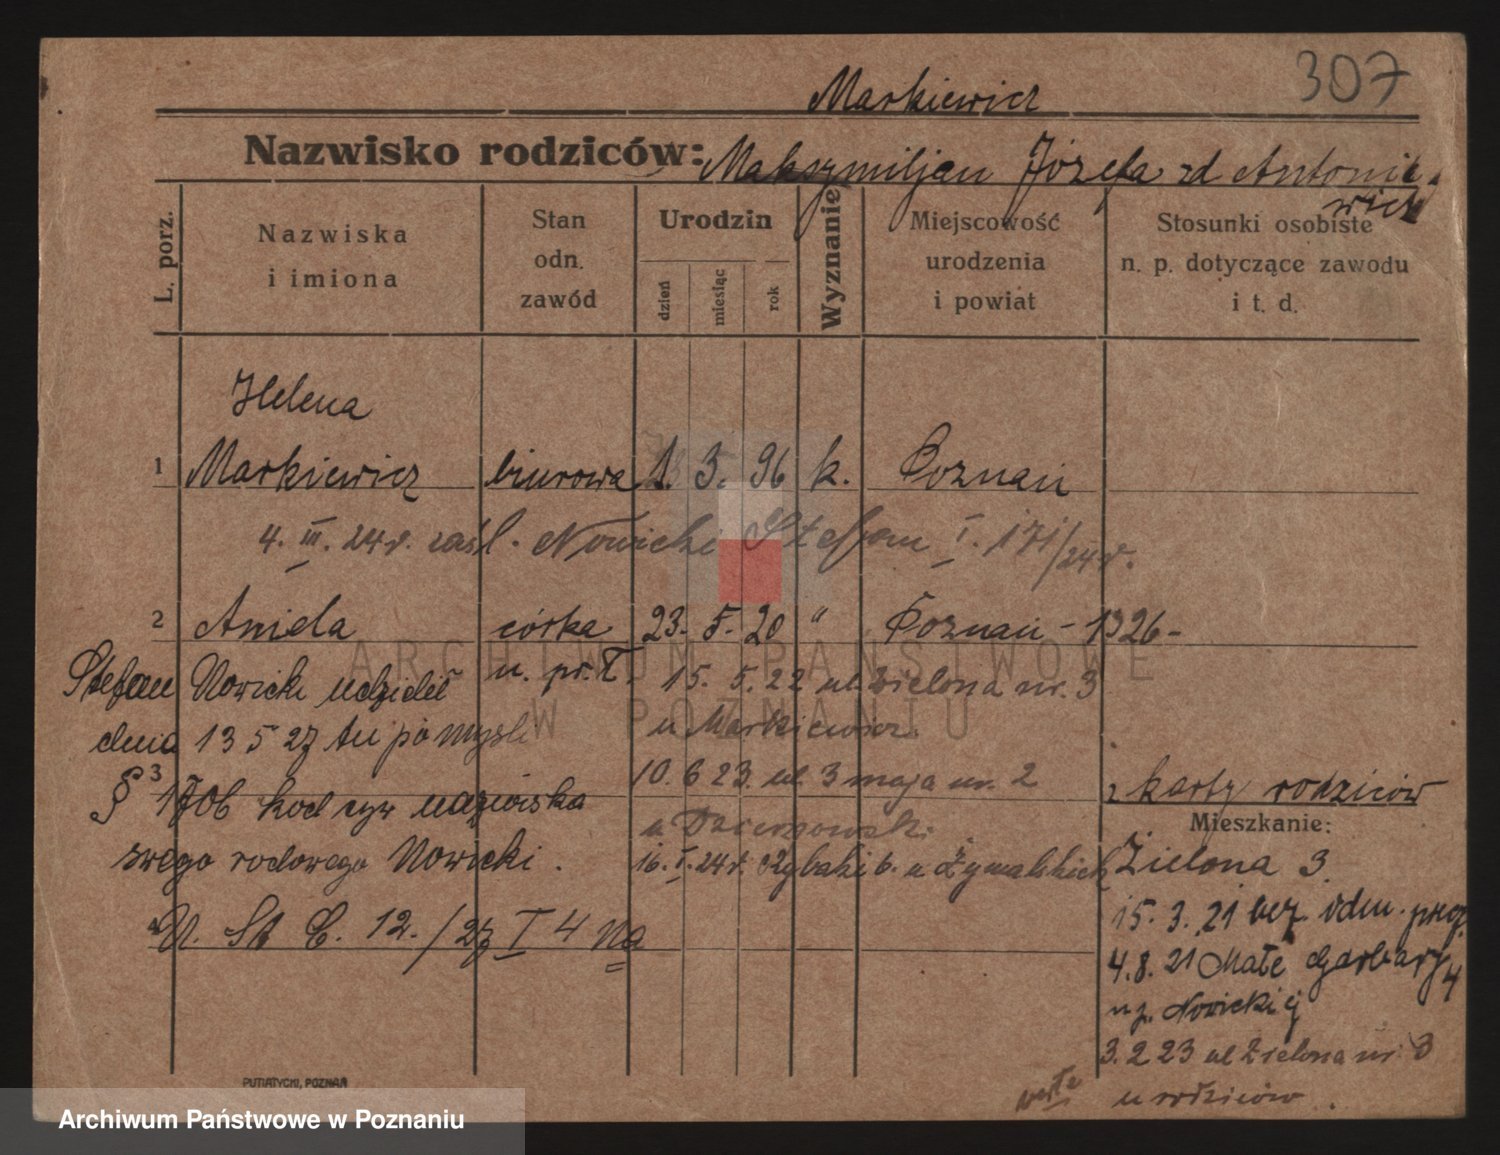 307
Markiewicz
Nazwisko rodziców: Maksymiljan Józefa zd Antonie
wicz
L. porz.
Nazwiska
i imiona
Stan
odn.
zawód
Urodzin
dzień
miesiąc
rok
Wyznanie
Miejscowość
urodzenia
i powiat
Stosunki osobiste
n. p. dotyczące zawodu
i t. d.
Helena
1 Markiewicz biurowa 1. 3. 96 k. Poznań
4. III. 24r. zaśl. Nowicki Stefan I. 171/24r.
2 Aniela córka 23. 5. 20 " Poznań - 1926 -
u. pr. I.
Stefan Nowicki udzielił
dnia 13 5 27 tu po myśli
§ 1706 kod cyw nazwiska
swego rodowego Nowicki.
3
4
U. St C. 12./27 I 4 Na
15. 5. 22 ul. Zielona nr. 3
u Markiewicz.
10. 6 23. ul. 3 maja nr. 2
u
16. I. 24r. Rybaki 6. u Żymalskich
z karty rodziców
Mieszkanie:
Zielona 3.
15. 3. 21 bez odm.
4. 8. 21 Małe Garbary 4
u p. Nowickiej
3. 2 23 ul Zielona nr 3
u rodziców.
verte
PUTIATYCKI, POZNAŃ
ARCHIWUM PAŃSTWOWE
W POZNANIU
Archiwum Państwowe w Poznaniu